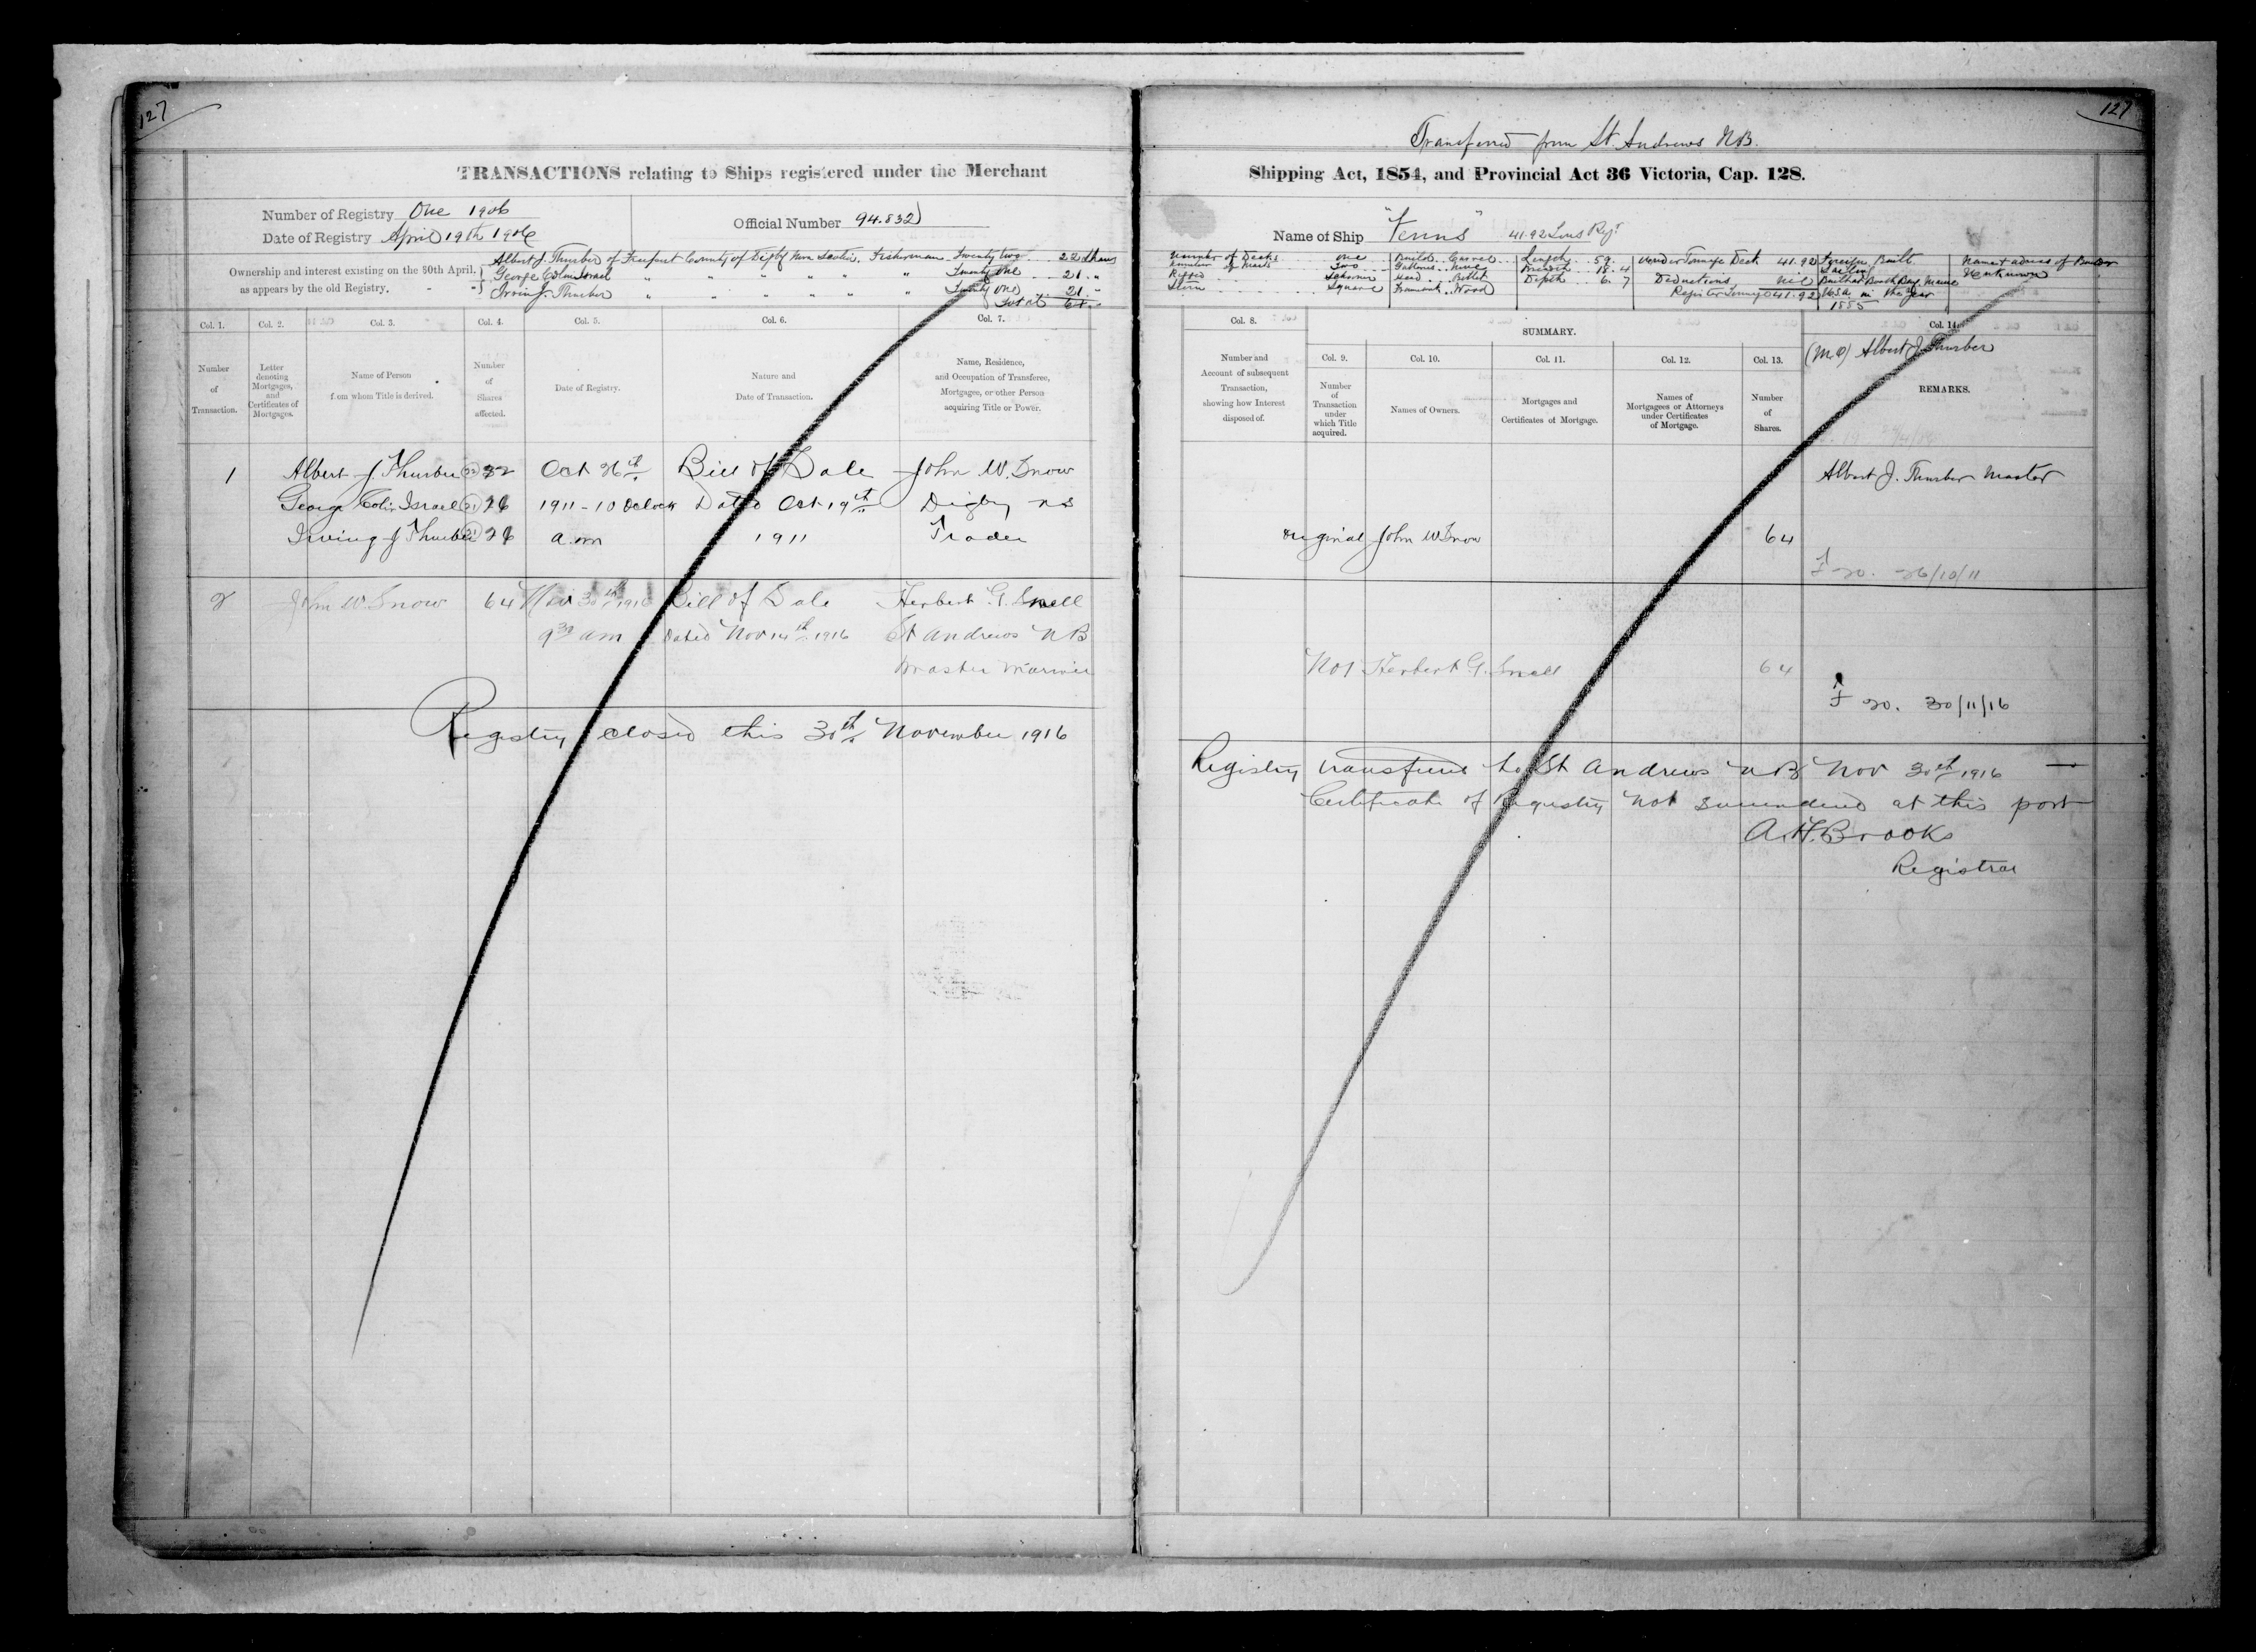 127
TRANSACTIONS relating to Ships registered under the Merchant
Number of Registry One 1906
Date of Registry April 19th 1906
Official Number 94.832
Ownership and interest existing on the 30th April,
as appears by the old Registry.
Albert J. Thurber of Freeport County of Digby Nova Scotia. Fisherman Twenty two 22 Shares
George Colin Israel " " " " " " Twenty One 21 "
Irvin J. Thurber " " " " " " Twenty One 21 "
Total 64
Col. 1. Col. 2. Col. 3. Col. 4. Col. 5. Col. 6. Col. 7.
Number of Transaction.
Letter denoting Mortgages, and Certificates of Mortgages.
Name of Person from whom Title is derived.
Number of Shares affected.
Date of Registry.
Nature and Date of Transaction.
Name, Residence, and Occupation of Transferee, Mortgagee, or other Person acquiring Title or Power.
1 Albert J. Thurber (22) Oct 26th Bill of Sale John W. Snow
George Colin Israel (21) 1911 - 10 Oclock Dated Oct 19th Digby NS
Irving J Thurber (21) a.m 1911 Trader
2 John W. Snow 64 Nov 30th 1916 Bill of Sale Herbert G. Snell
9 30 am Dated Nov 14th 1916 St Andrews NB
Master Mariner
Registry closed this 30th November 1916
127
Transferred from St. Andrews N.B.
Shipping Act, 1854, and Provincial Act 36 Victoria, Cap. 128.
Name of Ship "Venus" 41.92 Tons Regr
Number of Decks one Build Carvel Length 59. Under Tonnage Deck 41.92 Foreign Built Name & adress of Builder
Number of Masts Two Gallows None Breadth 18.4 Sailing Unknown
Rigged Schooner Head Billet Depth 6.7 Deductions Nil Built at Booth Bay, Maine
Stern Square Framework Wood Register Tonnage 41.92 U.S.a. in the Year
1885
Col. 8.
SUMMARY.
Col. 14.
Col. 9. Col. 10. Col. 11. Col. 12. Col. 13.
(M O) Albert J. Thurber
Number and Account of subsequent Transaction, showing how Interest disposed of.
Number of Transaction under which Title acquired.
Names of Owners.
Mortgages and Certificates of Mortgage.
Names of Mortgagees or Attorneys under Certificates of Mortgage.
Number of Shares.
REMARKS.
Albert J. Thurber Master
Original John W Snow 64
F 20. 26/10/11
No 1 Herbert G. Snell 64
F 20. 30/11/16
Registry transferred to St Andrews NB Nov 30th 1916
Certificate of Registry Not surrendered at this port
A.H. Brooks
Registrar